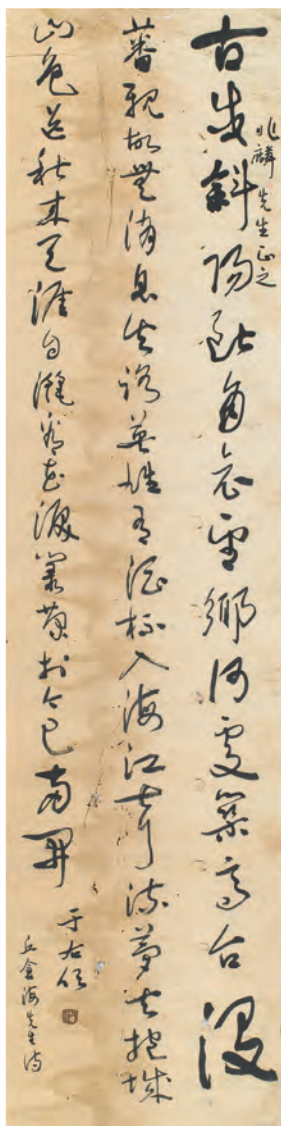 兆麟先生正之
古戍斜陽斷角哀望鄉何處築高台沒
蕃親故無消息失路英雄有酒杯入海江聲流夢去抱城
山色送秋來天涯自灑看花淚叢菊於今已兩開
于右任
丘倉海先生詩